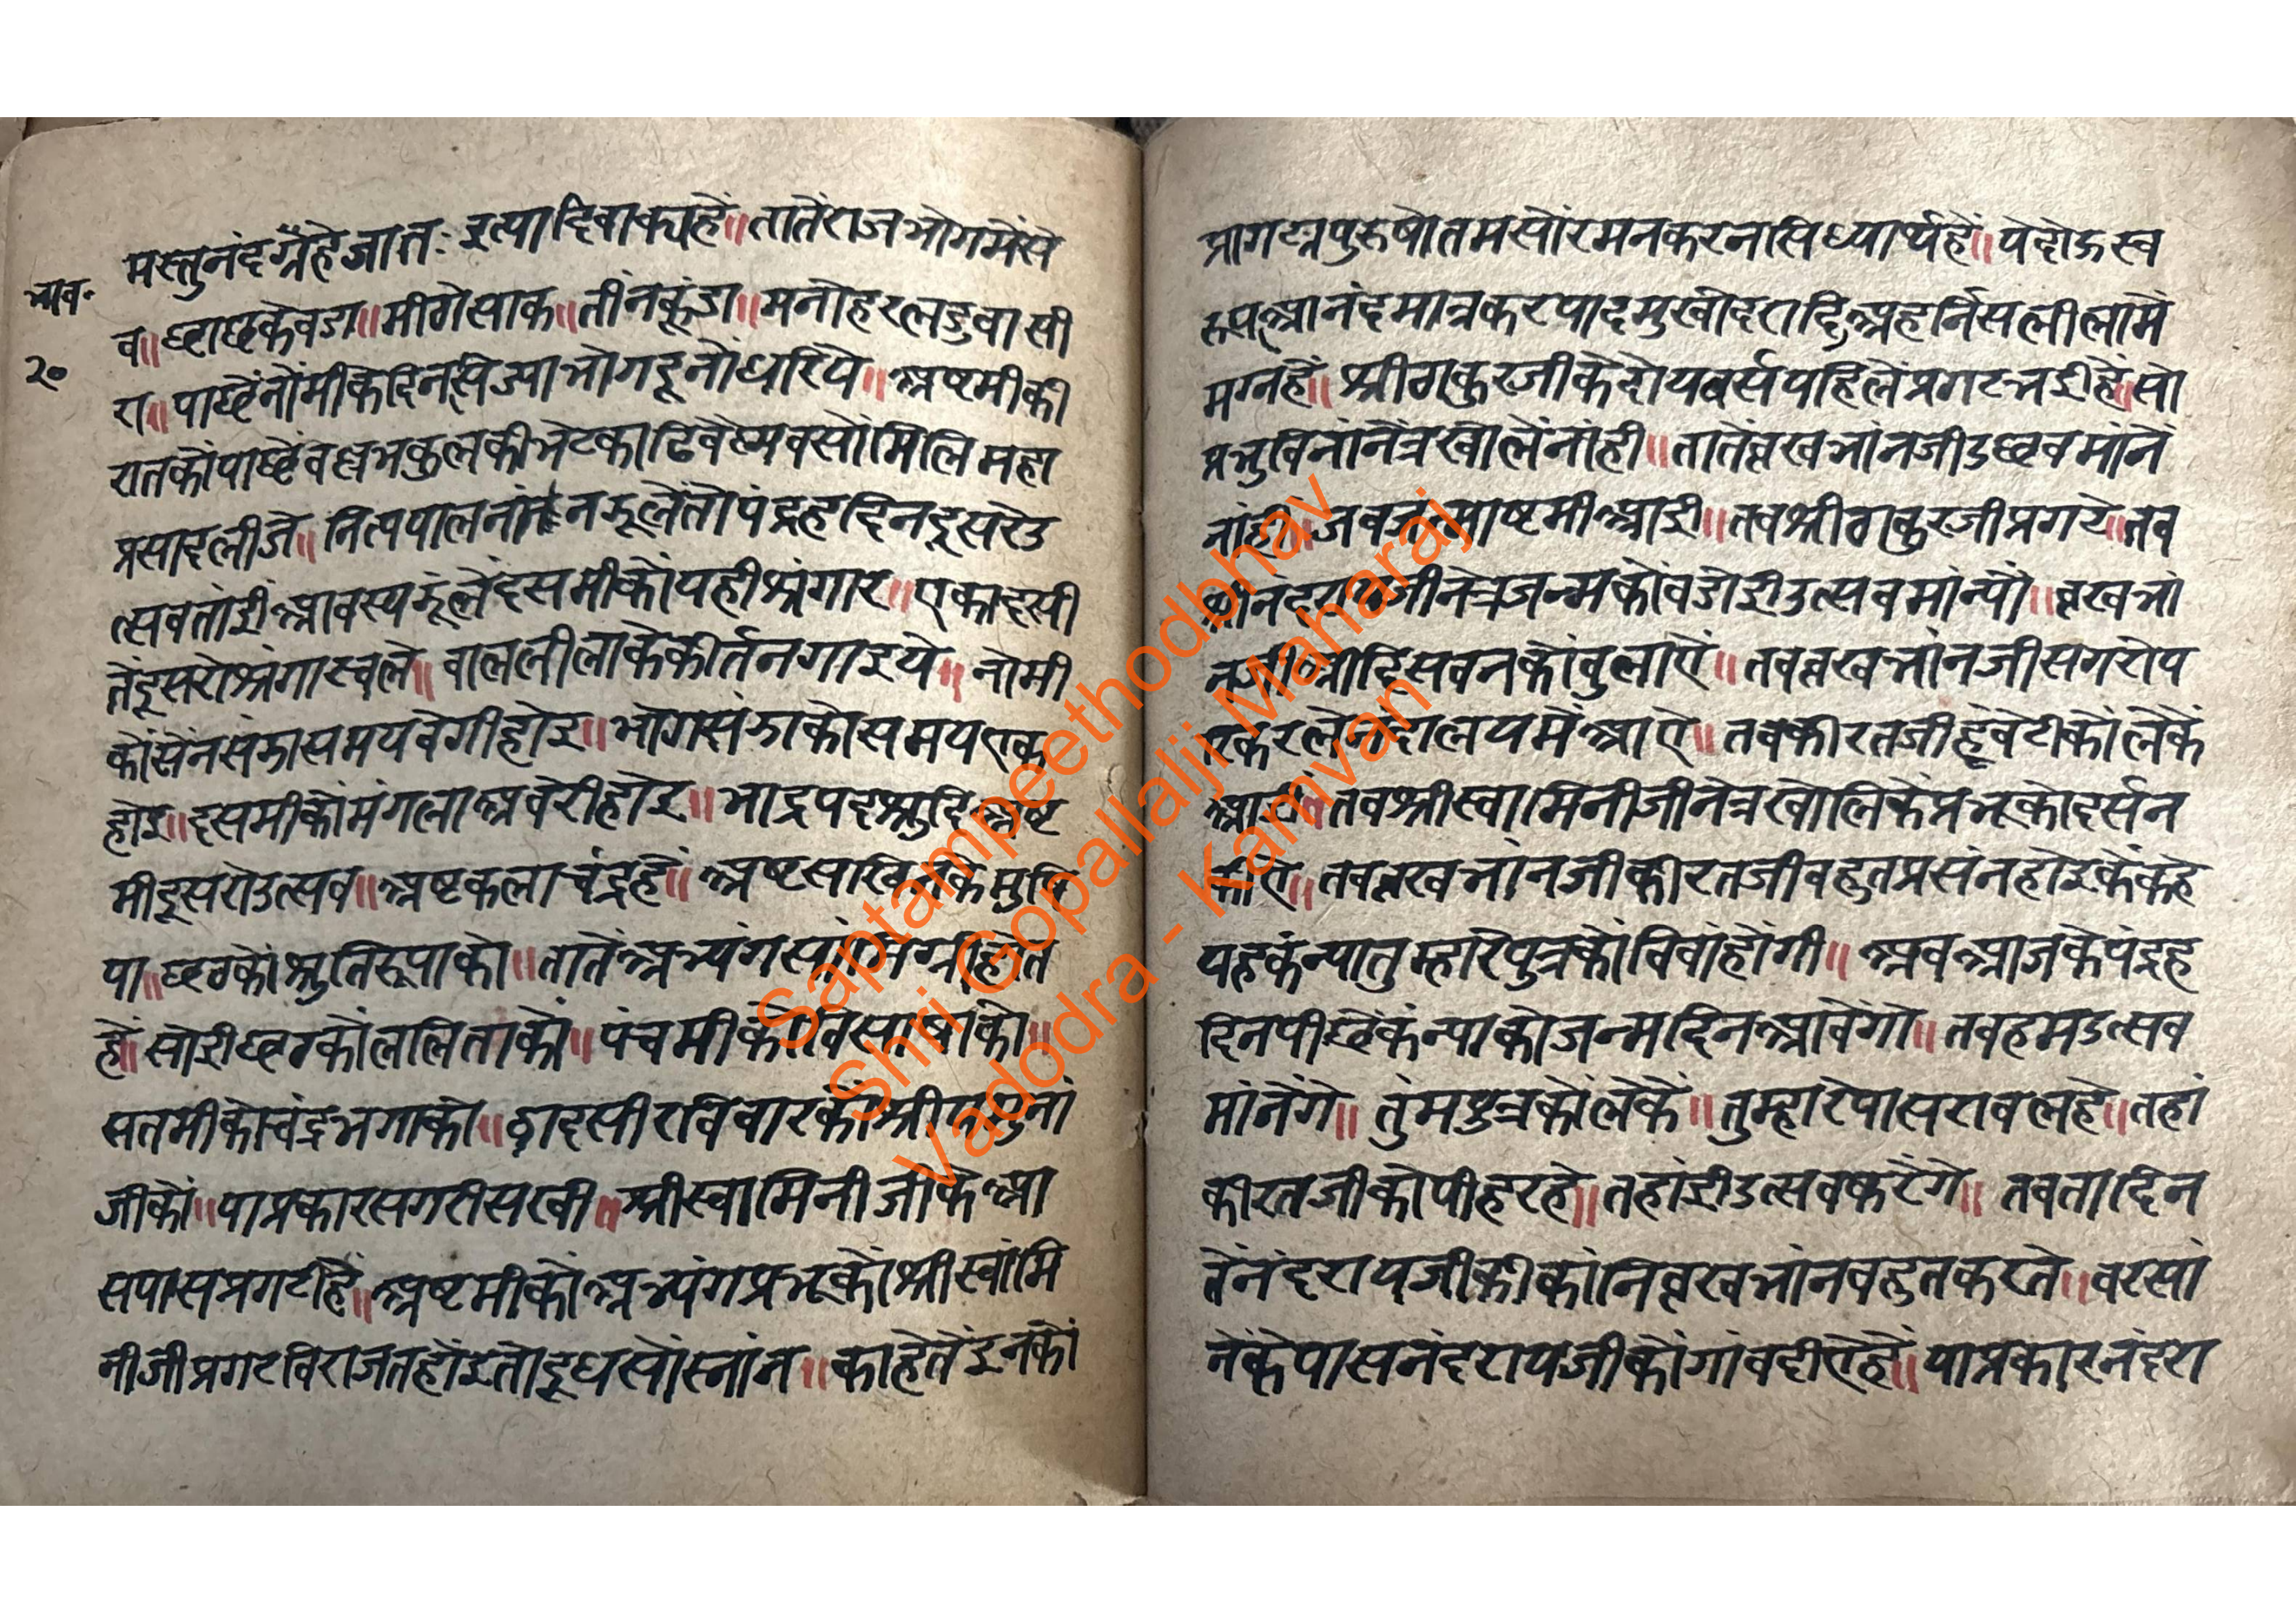 मस्तुनंदग्रैहेजातः इत्यादिवाक्यहें॥तातेंराजभोगमेंसे
भाव॰
व॥छाछकेवडा॥मीठोसाक॥तीनकूंडा॥मनोहरलडुवासी
२०
रा॥पाछेंनोंमीकेदिनसिज्याभोगदूनोंधरिये॥अष्टमीकी
रातकोंपाछेंवल्लभकुलकीभेटकाढिवैष्णवसोंमिलिमहा
प्रसादलीजे॥नित्यपालनांनझूलेंतोपंद्रहदिनदूसरेउ
त्सवतांईआवस्यझूंलेंदसमीकोंयहीश्रृंगार॥एकादसी
तेंदूसरोश्रृंगारचले॥बाललीलाकेकीर्तनगाइये॥नोमी
कोंसेंनसंझासमयवेगीहोइ॥भोगसंझाकोसमयएक
होइ॥दसमीकोंमंगलाअवेरीहोइ॥भाद्रपदश्रुदिअष्ट
मीदूसरोउत्सव॥अष्टकलाचंद्रहें॥अष्टसखि
या॥छठकोंश्रुतिरूपाको॥तातेंअभ्यंग
हें॥सोईछठकोंललिताकों॥पंचमीकोविसाषाको॥
सतमीकोचंद्रभगाको॥द्वादसीरविवारकोंश्री
जीकों॥याप्रकारसगरीसखी॥श्रीस्वामिनीजीकेआ
सपासप्रगटीहें॥अष्टमीकोंअभ्यंगप्रभूकोंश्रीस्वांमि
नीजीप्रगटविराजतहोंइतोदूधसोंस्नांन॥काहेतेंइनकों
प्रागट्यपुरुषोतमसोंरमनकरनासिध्यार्थहें॥येदोऊस्व
रूपआनंदमात्रकरपादमुखोदरादिअहर्निसलीलामें
मग्नहें॥श्रीठाकुरजीकेदोयवर्सपहिलेंप्रगटभईहें॥सो
प्रभुविनांनेत्रखोलेंनांही॥तातेंव्रखभांनजीउछवमांनें
नांही॥जबजन्माष्टमीआई॥तबश्रीठाकुरजीप्रगटे॥तब
श्रीनंदरायजीनेंजन्मकोंवडोईउत्सवमांन्यों॥व्रखभां
नजीआदिसबनकोंबुलाऐं॥तबव्रखभांनजीसगरोप
रिकरलेनंदालयमेंआऐ॥तबकीरतजीहूंबेटीकोंलेकें
आई॥तबश्रीस्वामिनीजीनेत्रखोलिकेंप्रभूकोदर्सन
कीऐ॥तबव्रखभांनजीकीरतजीबहुतप्रसंनहोइकेंकहे
यहकंन्यातुम्हारेपुत्रकोंविवांहोंगी॥अबआजकेपंद्रह
दिनपीछेंकंन्याकोजन्मदिनआवेंगो॥तबहमउत्सव
मांनेंगे॥तुंमपुत्रकोंलेकें॥तुम्हारेपासरावलहे॥तहां
कीरतजीकोपीहरहे॥तहांईउत्सवकरेंगे॥तबतादिन
तेंनंदरायजीकीकांनिव्रखभांनबहुतकरते॥बरसां
नेंकेपासनंदरायजीकोंगांवदीऐहें॥याप्रकारनंदरा